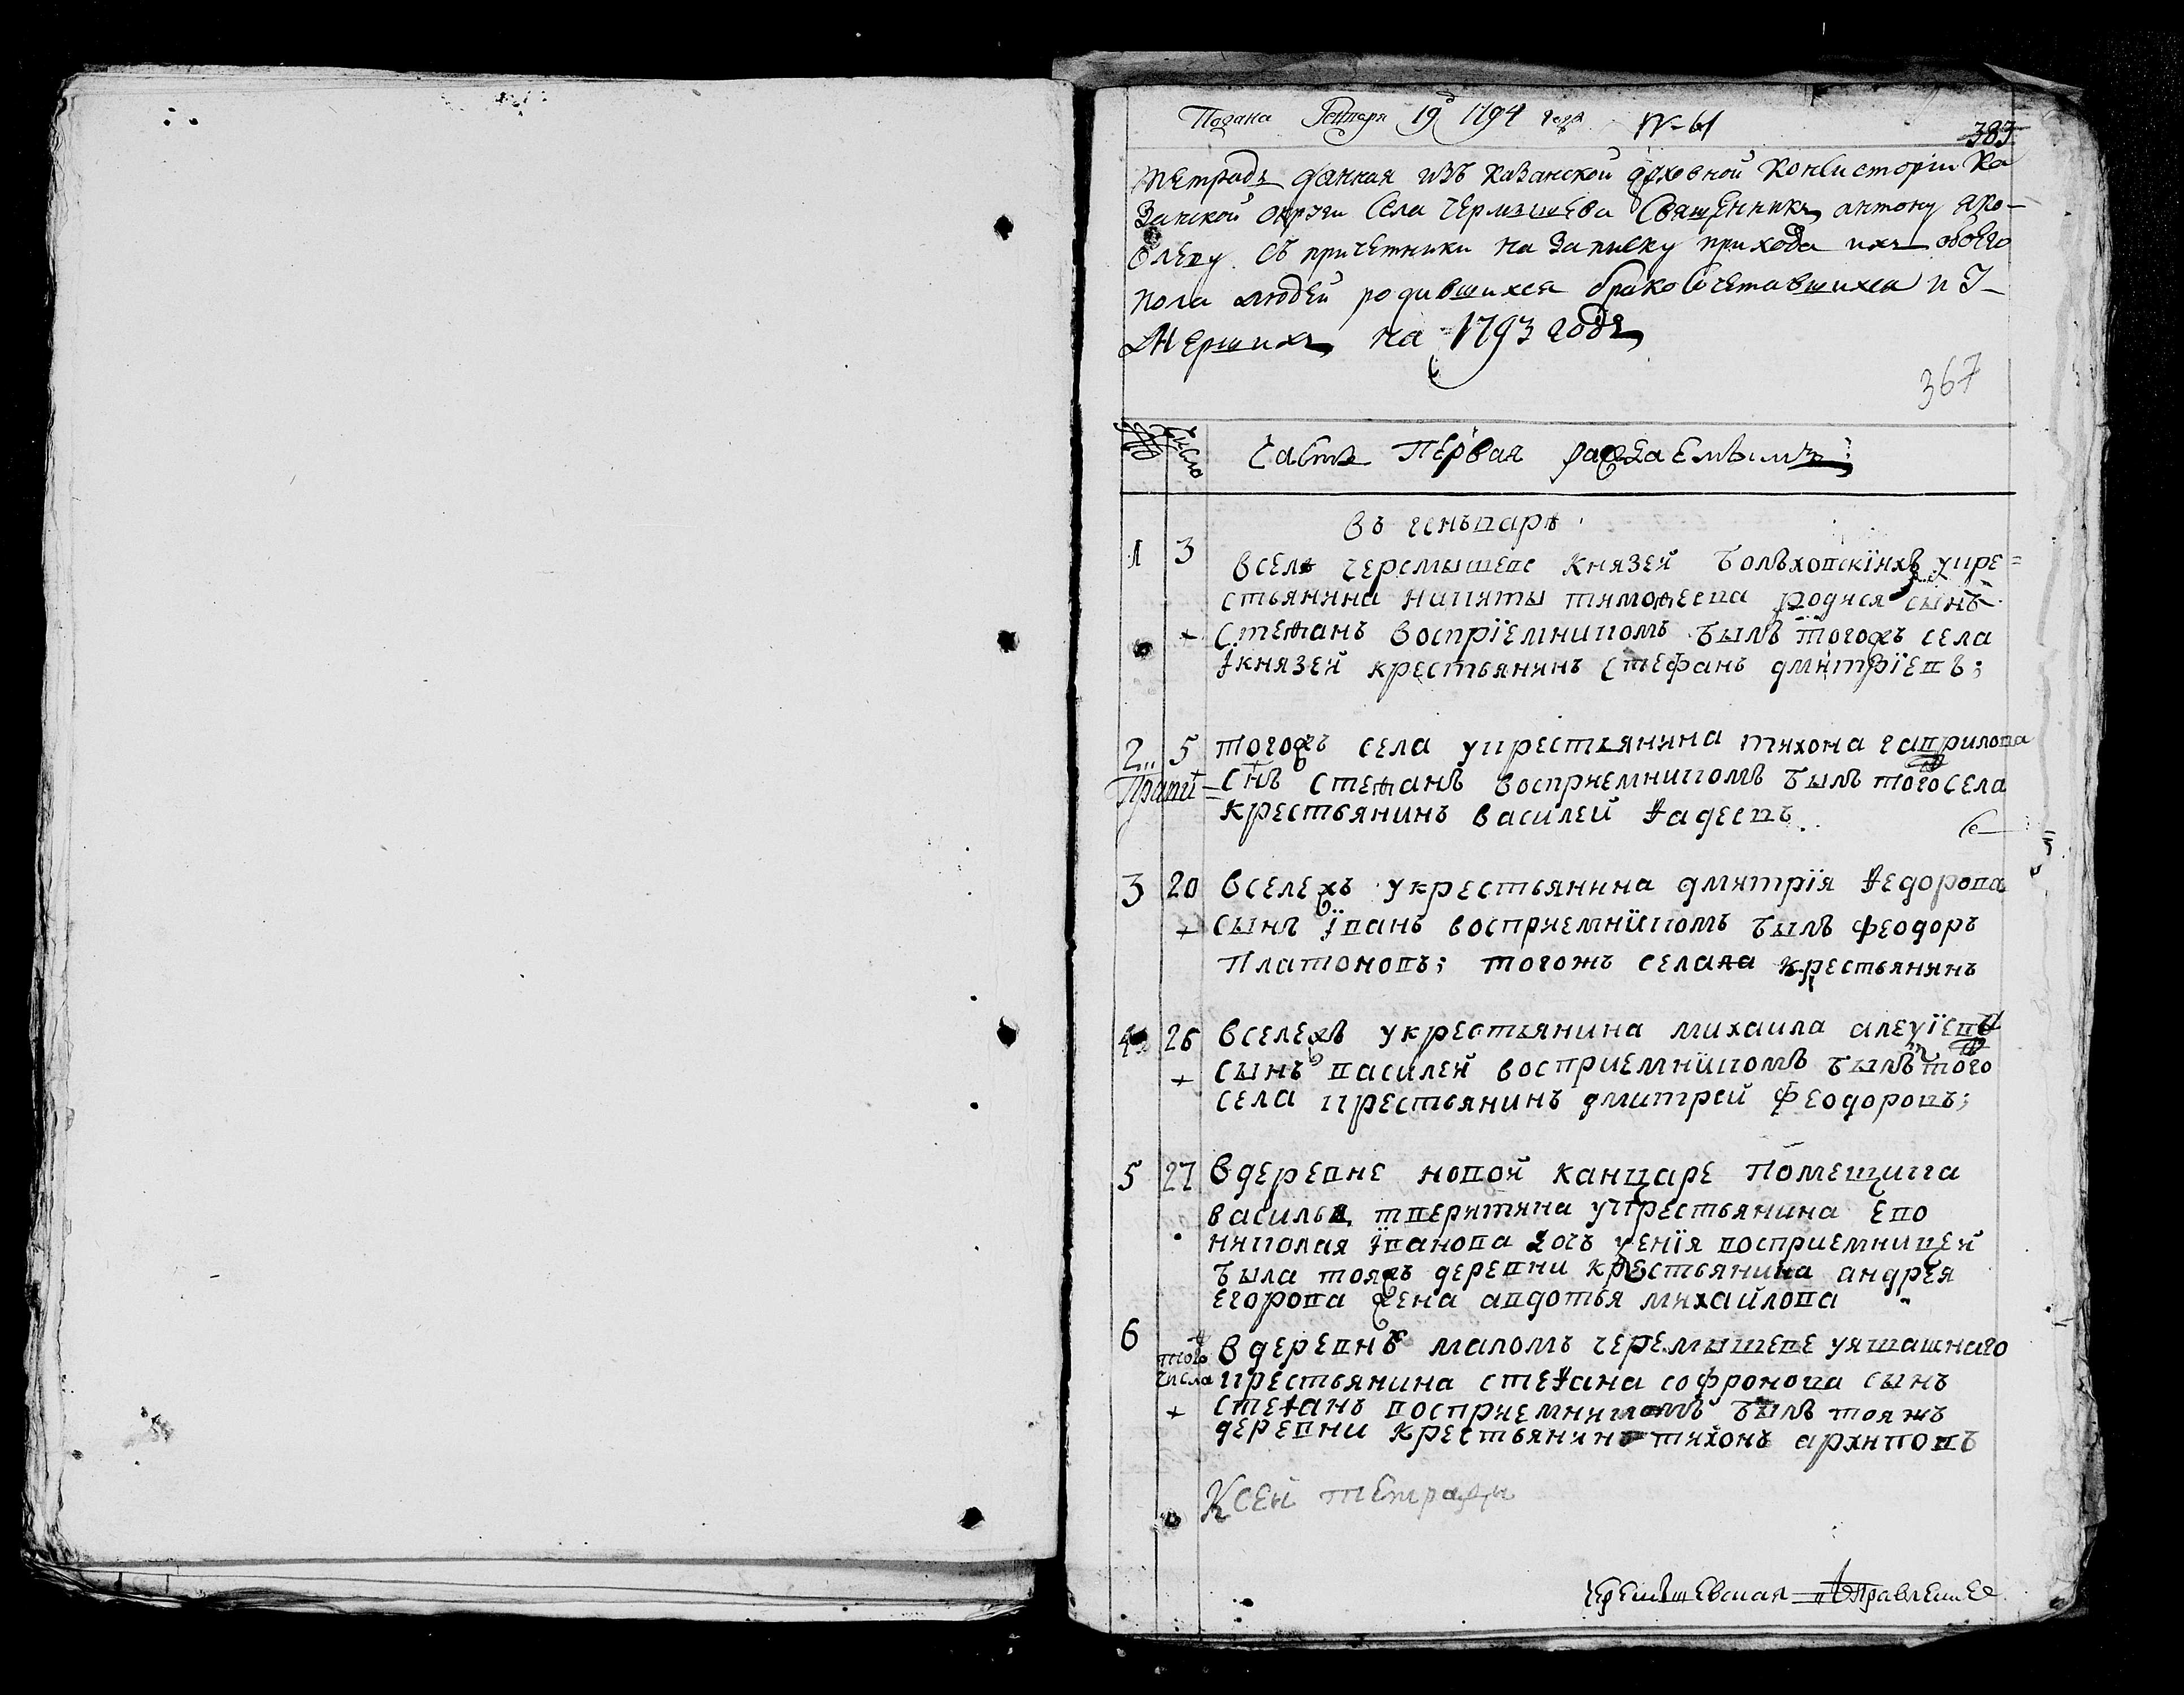 Подана Генваря 19д 1794 года № 61
383
тетрадь данная изъ казанской духовной Консисторіи Ка
занской округи села чермышева священнику антону яко-
влеву съ причетники на записку прихода ихъ обоего
пола людей родившихся бракосочетавшихся и У-
мершихъ на 1793 годъ
367
число
часть Первая раждаемымъ
въ геньварѣ
1 3 вселѣ черемышеве князей болъховскіихъ укре=
стьянина никиты тимоѳеева родися сынъ
стеѳанъ воспріемникомъ былъ тогожъ села
князей крестьянинъ стефанъ дмитріевъ;
2 5 тогожъ села укрестьянина тихона гаврилова
снъ стеѳанъ восприемникомъ былъ того села
крестьянинъ василей ѳадеевъ
3 20 всележъ укрестьянина дмитрія ѳедорова
сынъ їванъ восприемникомъ былъ феодоръ
Платоновъ; тогожъ села крестьянинъ
4 26 всележъ укрестьянина михаила
сынъ василей восприемникомъ былъ того
села крестьянинъ дмитрей Феодоровъ;
5 27 вдеревне новой канцаре Помещика
василья укрестьянина ево
николая їванова дочь восприемницей
была тояжъ деревни крестьянина андрея
егорова жена авдотья михайлова
6 того вдеревнѣ маломъ черемышеве уяшашнаго
числа крестьянина стеѳана софронова сынъ
стеѳанъ восприемникомъ былъ тояжъ
деревни крестьянинъ тихонъ архиповъ
Ксей тетради